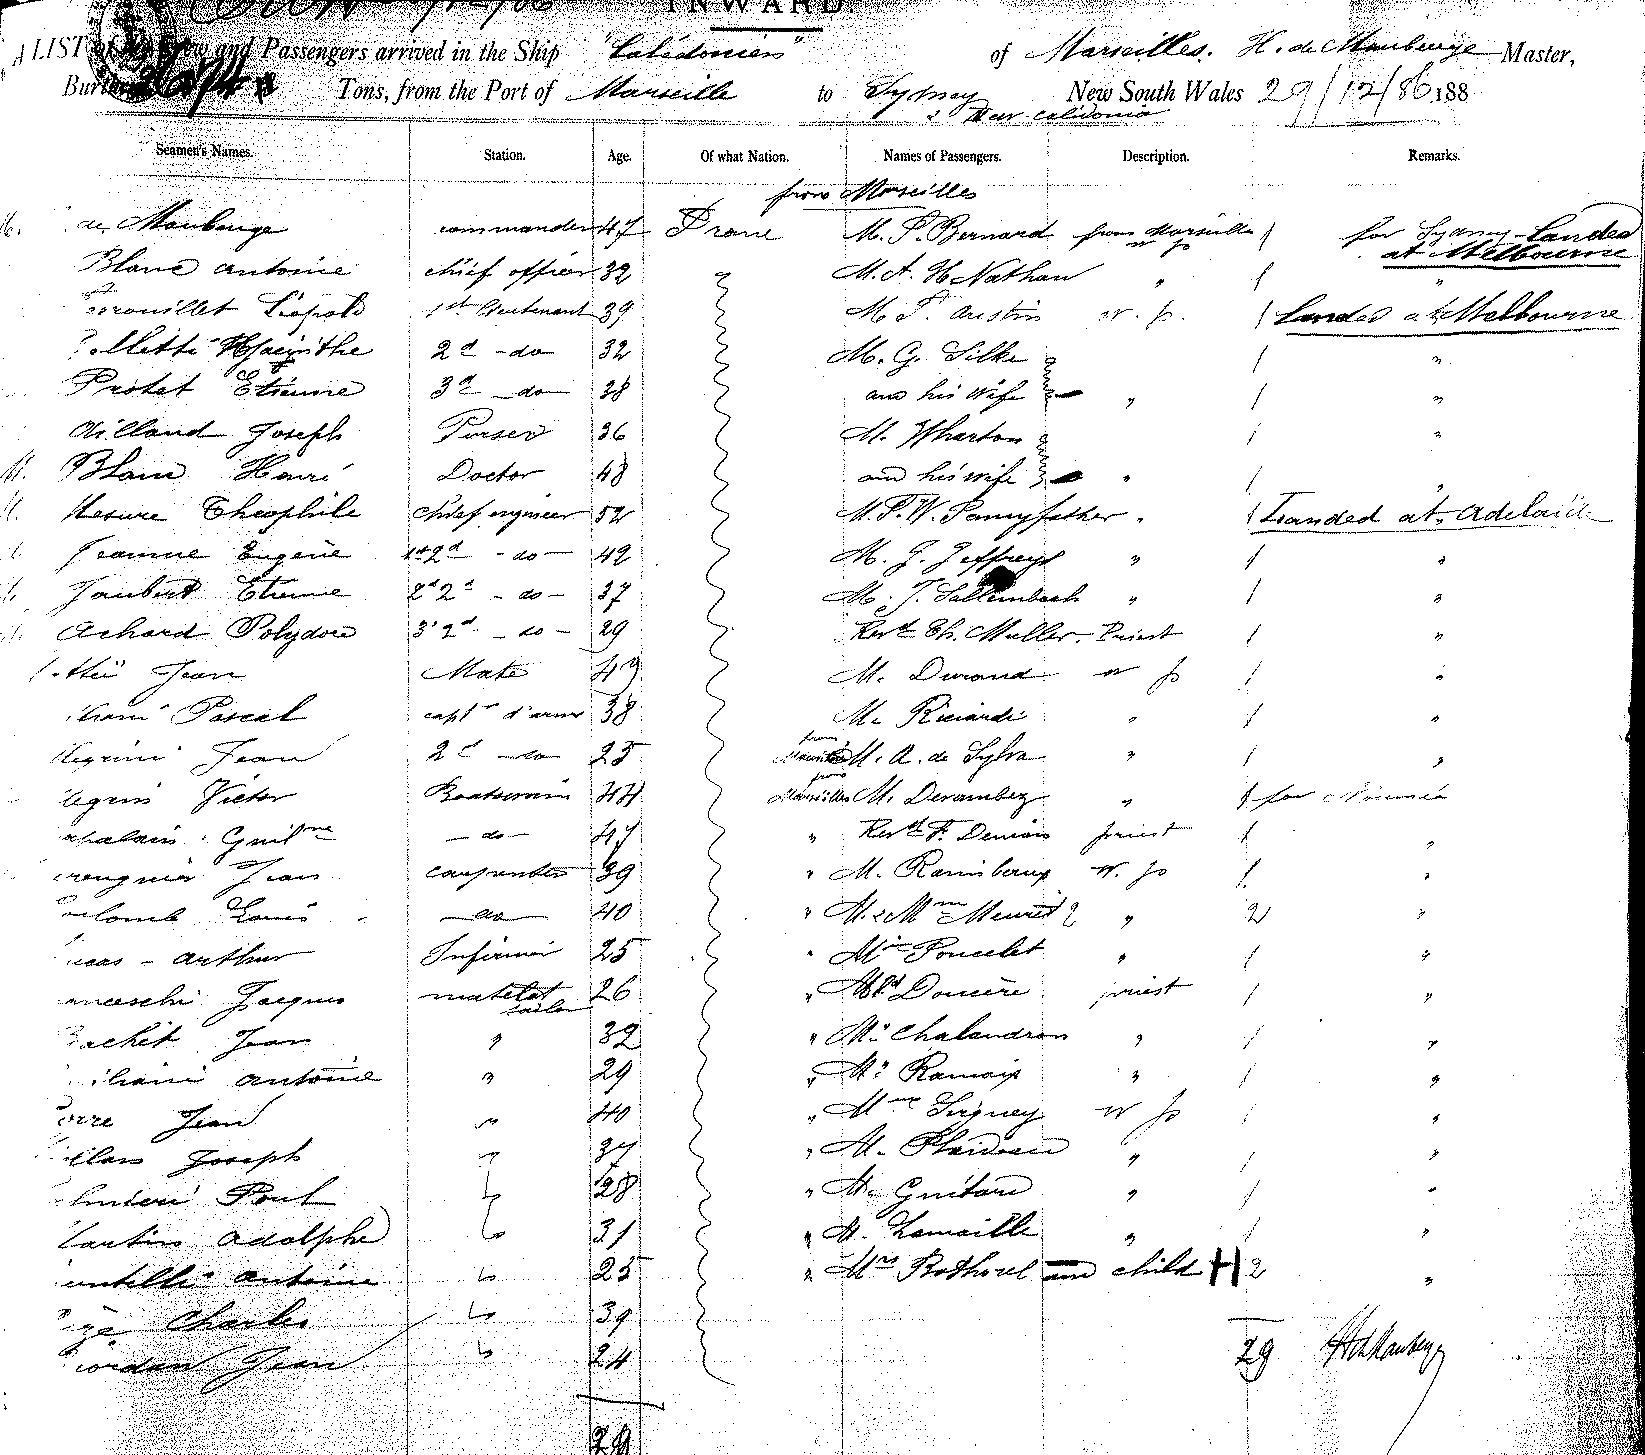 INWARD
A LIST of Crew and Passengers arrived in the Ship "Calédonien" of Marseilles. H. de Maubeuge Master,
Tons, from the Port of Marseille to Sydney New South Wales 29/12/86 188
& New Calidonia
Seamen's Names. Station. Age. Of what Nation. Names of Passengers. Description. Remarks.
from Marseilles
de Maubeuge commander 47 France M. P. Bernard from Marseille / for Sydney Landed
w p at Melbourne
Blanc Antoine chief officer 32 " M. A. H Nathan " / "
rouillet Léopold 1st Lieutenant 39 M. T. Austin w. p. / Landed at Melbourne
llette Hyacinthe 2d - do 32 M. G. Silke / "
Protet Etienne 3d - do 38 and his Wife " / "
Ailland Joseph Purser 36 M. Wharton / "
Blanc Henri Doctor 48 and his wife " / "
Mesure Theophile chief engineer 52 M. F. W. Pennyfather " / Landed at Adelaide
Jeanne Eugène 1st 2d - do - 42 M. G. Jeffreys " / "
Jaubert Etienne 2d 2d - do - 37 M. J. Sallembach " / "
Achard Polydore 3d 2d - do - 29 Revd Ch. Muller. Priest / "
Jean Mate 49 M. Durand w p / "
Pascal capt d'arme 38 M. Ricciardi " / "
from
legrini Jean 2d - do 25 M. A. de Sylva " / "
from
legrin Victor Boatswain 44 Marseilles M. Derambez " / for Nouméa
apalain Guilme - do - 47 " Revd F. Demais priest / "
Jean carpenter 39 " M. Raimberux w. p / "
olomb Louis - do 40 " M. & Mme Meuret 2 " 2 "
ucas - Arthur Infirmier 25 " Mme Poncelet " / "
anceschi Jacques matelot 26 " Domère priest / "
sailor
achet Jean " 32 " Mr Chalandron " / "
iliani Antoine " 29 " Mr Ramaix " / "
orre Jean " 40 " Mme Signey w p / "
illan Joseph " 37 " M. Plaideau " / "
Paul " 28 " M. Guitare " / "
Martin Adolphe " 31 " M. Lamaille " / "
antelli Antoine " 25 " Mrs Bothorel and child 2 "
Charles " 39
Jordan Jean " 24 29 H de Maubeuge
29